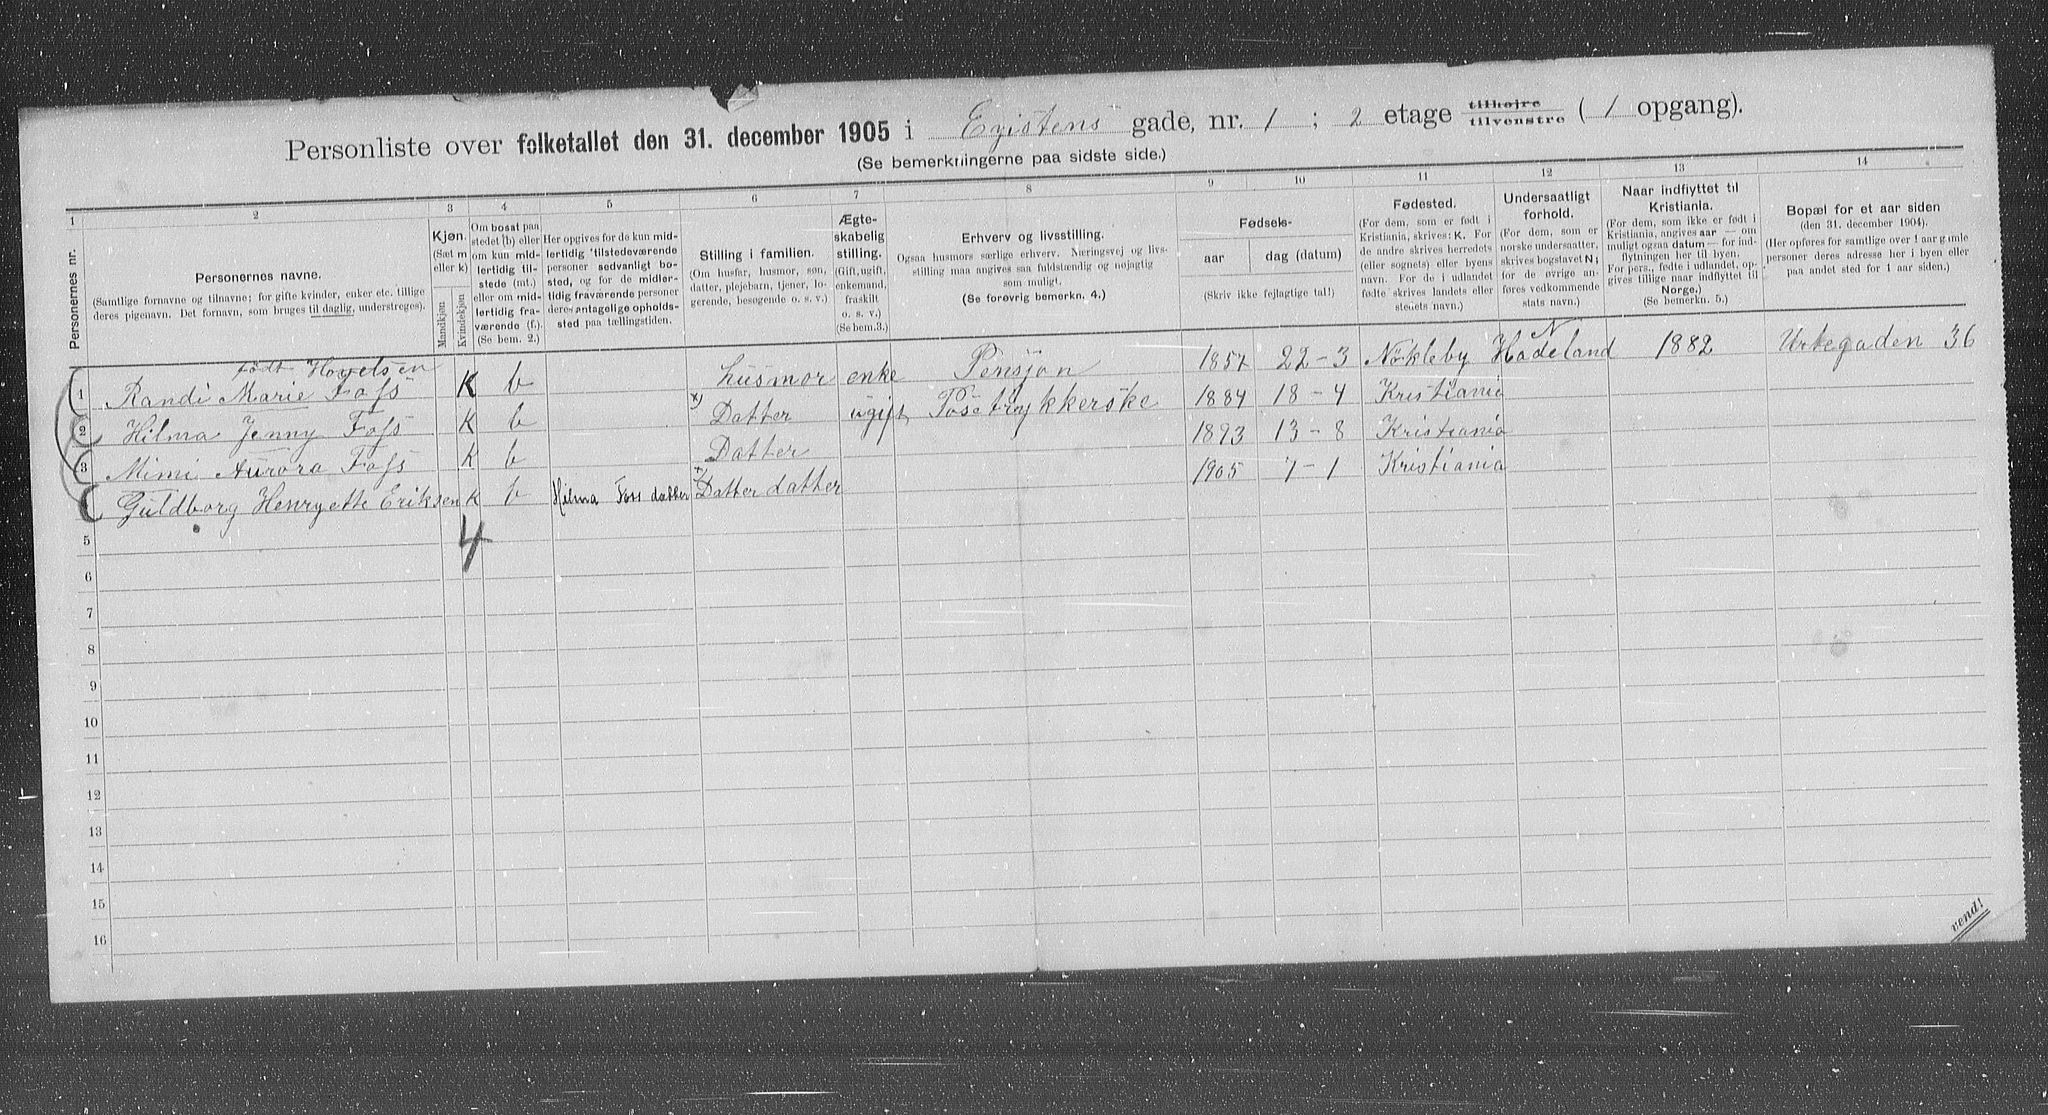 Personliste over folketallet den 31. december 1905 i Existens gade, nr. 1 ; 2 etage tilhøjre tilvenstre ( 1 opgang).
(Se bemerkningerne paa sidste side.)
1 2 3 4 5 6 7 8 9 10 11 12 13 14
Personernes nr.
Personernes navne.
(Samtlige fornavne og tilnavne; for gifte kvinder, enker etc. tillige
deres pigenavn. Det fornavn, som bruges til daglig, understreges).
Kjøn.
(Sæt m
eller k)
Mandkjøn
Kvindekjøn
Om bosat paa
stedet (b) eller
om kun mid-
lertidig til-
stede (mt.)
eller om mid-
lertidig fra-
værende (f.).
(Se bem. 2.)
Her opgives for de kun mid-
lertidig tilstedeværende
personer sedvanligt bo-
sted, og for de midler-
tidig fraværende personer
deres antagelige opholds-
sted paa tællingstiden.
Stilling i familien.
(Om husfar, husmor, søn,
datter, plejebarn, tjener, lo-
gerende, besøgende o. s. v.)
Ægte-
skabelig
stilling.
(Gift, ugift,
enkemand,
fraskilt
o. s. v.)
(Se bem.3.)
Erhverv og livsstilling.
Ogsaa husmors særlige erhverv. Næringsvej og livs-
stilling maa angives saa fuldstændig og nøjagtig
som muligt.
(Se forøvrig bemerkn. 4.)
Fødsels-
aar dag (datum)
(Skriv ikke fejlagtige tal!)
Fødested.
(For dem, som er født i
Kristiania, skrives: K. For
de andre skrives herredets
(eller sognets) eller byens
navn. For de i udlandet
fødte skrives landets eller
stedets navn.)
Undersaatligt
forhold.
(For dem, som er
norske undersaatter,
skrives bogstavet N;
for de øvrige an-
føres vedkommende
stats navn.)
Naar indflyttet til
Kristiania.
(For dem, som ikke er født i
Kristiania, angives aar — om
muligt ogsaa datum — for ind-
flytningen her til byen.
For pers., fødte i udlandet, op-
gives tillige naar indflyttet til
Norge.)
(Se bemerkn. 5.)
Bopæl for et aar siden
(den 31. december 1904).
(Her opføres for samtlige over 1 aar gamle
personer deres adresse her i byen eller
paa andet sted for 1 aar siden.)
født Hovelsen
1 Randi Marie Foss K b husmor enke Pensjon 1857 22-3 Nökleby Hadeland N 1882 Urtegaden 36
2 Hilma Jenny Foss K b x) Datter ugift Posetrykkerske 1884 18-4 Kristiania
3 Mimi Aurora Foss K b Datter 1893 13-8 Kristiania
Guldborg Henryette Eriksen K b Hilma Foss datter x) Datter datter 1905 7-1 Kristiania
4
5
6
7
8
9
10
11
12
13
14
15
16
vend!